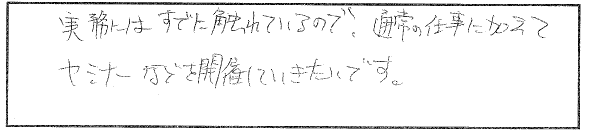 実務にはすでに触れているので、通常の仕事に加えて
セミナーなどを開催していきたいです。